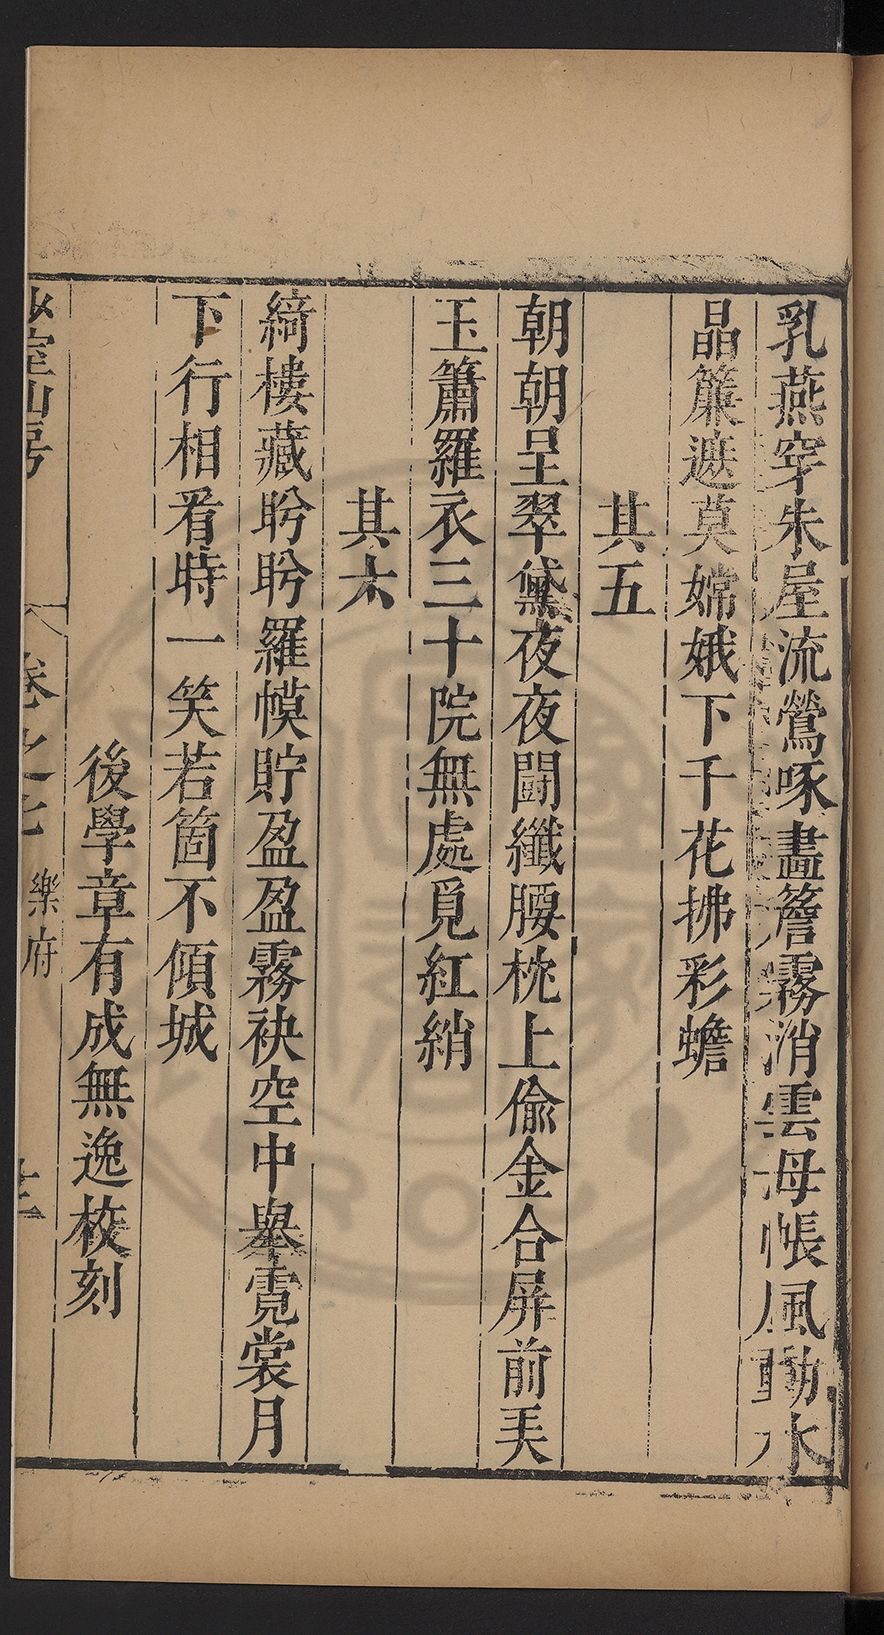 乳燕穿朱屋流鶯啄畫簷霧消雲母帳風動水
晶簾遮莫嫦娥下千花拂彩蟾
其五
朝朝呈翠黛夜夜鬪纖腰枕上偸金合屏前美
玉簫羅衣三十院無處覓紅綃
其六
綺樓藏盻盻羅幙貯盈盈霧袂空中舉霓裳月
下行相看時一笑若箇不傾城
後學章有成無逸校刻
室山房
卷之七 樂府